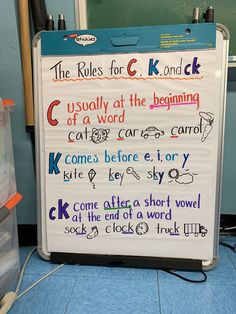 The Rules for C, K, and ck
C usually at the beginning
of a word
cat car carrot
K comes before e, i, or y
kite key sky
ck come after a short vowel
at the end of a word
sock clock truck